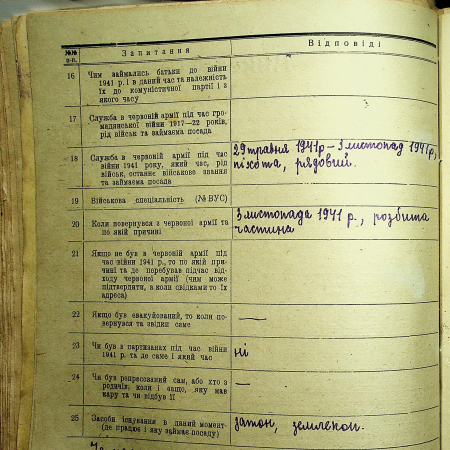 №№ п-п. Запитання Відповіді
16 Чим займались батьки до війни
1941 р. і в даний час та належність
їх до комуністичної партії і з
якого часу
17 Служба в червоній армії під час гро-
мадянської війни 1917—22 років,
рід військ та займаєма посада
18 Служба в червоній армії під час
війни 1941 року, який час, рід
військ, останнє військове звання
та займаєма посада
29 травня 1941р — 3 листопад 1941р,
піхота, рядовий.
19 Військова спеціяльність (№ ВУС)
20 Коли повернувся з червоної армії та
по якій причині
3 листопада 1941 р., розбита
частина
21 Якщо не був в червоній армії під
час війни 1941 р., то по якій при-
чині та де перебував підчас від-
ходу червоної армії (чим може
підтвердити, в коли свідками то їх
адреса)
22 Якщо був евакуйований, то коли по-
вернувся та звідки саме
—
23 Чи був в партизанах під час війни
1941 р. та де саме і який час
ні
24 Чи був репресований сам, або хто з
родичів, коли і защо, яку мав
кару та чи відбув її
—
25 Засоби існування в даний момент
(де працює і яку займає посаду)
затон, землекоп.